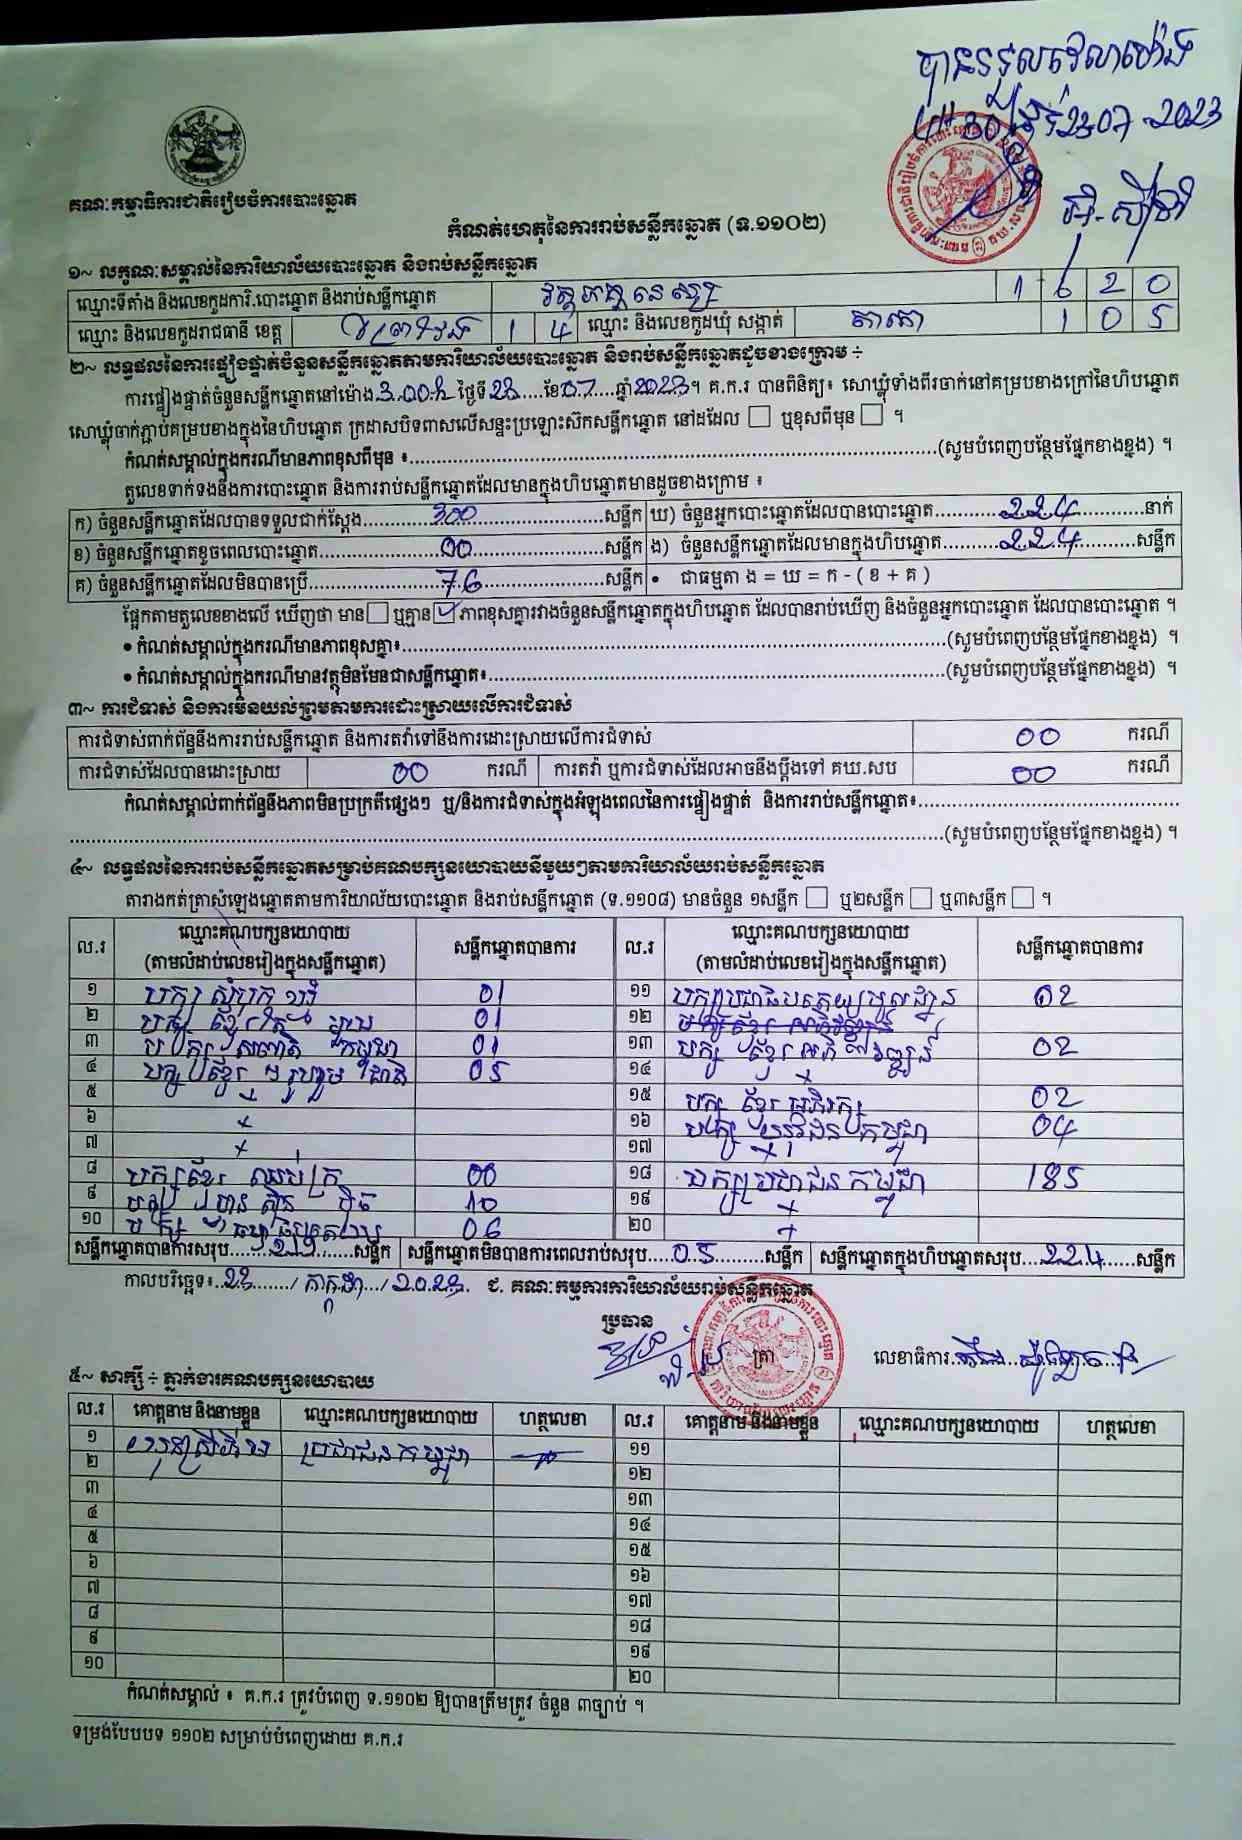 បានទទួលវេលាម៉ោង
23-07-2023
គណៈកម្មាធិការជាតិរៀបចំការបោះឆ្នោត
កំណត់ហេតុនៃការរាប់សន្លឹកឆ្នោត (ទ.១១០២)
១~ លក្ខណៈសម្គាល់នៃការិយាល័យបោះឆ្នោត និងរាប់សន្លឹកឆ្នោត
ឈ្មោះទីតាំង និងលេខកូដការិ.បោះឆ្នោត និងរាប់សន្លឹកឆ្នោត 1 6 2 0
ឈ្មោះ និងលេខកូដរាជធានី ខេត្ត ព្រៃវែង 1 4 ឈ្មោះ និងលេខកូដឃុំ សង្កាត់ 1 0 5
២~ លទ្ធផលនៃការផ្ទៀងផ្ទាត់ចំនួនសន្លឹកឆ្នោតតាមការិយាល័យបោះឆ្នោត និងរាប់សន្លឹកឆ្នោតដូចខាងក្រោម ÷
ការផ្ទៀងផ្ទាត់ចំនួនសន្លឹកឆ្នោតនៅម៉ោង 3.00 ថ្ងៃទី 23 ខែ 07 ឆ្នាំ 2023 ។ គ.ក.រ បានពិនិត្យ៖ សោឃ្លុំទាំងពីរចាក់នៅគម្របខាងក្រៅនៃហិបឆ្នោត
សោឃ្លុំចាក់ភ្ជាប់គម្របខាងក្នុងនៃហិបឆ្នោត ក្រដាសបិទពាសលើសន្ទះប្រឡោះស៊កសន្លឹកឆ្នោត នៅដដែល ☐ ឬខុសពីមុន ☐ ។
កំណត់សម្គាល់ក្នុងករណីមានភាពខុសពីមុន ៖ (សូមបំពេញបន្ថែមផ្នែកខាងខ្នង) ។
តួលេខទាក់ទងនឹងការបោះឆ្នោត និងការរាប់សន្លឹកឆ្នោតដែលមានក្នុងហិបឆ្នោតមានដូចខាងក្រោម ៖
ក) ចំនួនសន្លឹកឆ្នោតដែលបានទទួលជាក់ស្តែង 300 សន្លឹក ឃ) ចំនួនអ្នកបោះឆ្នោតដែលបានបោះឆ្នោត 224 នាក់
ខ) ចំនួនសន្លឹកឆ្នោតខូចពេលបោះឆ្នោត 00 សន្លឹក ង) ចំនួនសន្លឹកឆ្នោតដែលមានក្នុងហិបឆ្នោត 224 សន្លឹក
គ) ចំនួនសន្លឹកឆ្នោតដែលមិនបានប្រើ 76 សន្លឹក • ជាធម្មតា ង = ឃ = ក - ( ខ + គ )
ផ្អែកតាមតួលេខខាងលើ ឃើញថា មាន ☐ ឬគ្មាន ☑ ភាពខុសគ្នារវាងចំនួនសន្លឹកឆ្នោតក្នុងហិបឆ្នោត ដែលបានរាប់ឃើញ និងចំនួនអ្នកបោះឆ្នោត ដែលបានបោះឆ្នោត ។
• កំណត់សម្គាល់ក្នុងករណីមានភាពខុសគ្នា៖ (សូមបំពេញបន្ថែមផ្នែកខាងខ្នង) ។
• កំណត់សម្គាល់ក្នុងករណីមានវត្ថុមិនមែនជាសន្លឹកឆ្នោត៖ (សូមបំពេញបន្ថែមផ្នែកខាងខ្នង) ។
៣~ ការជំទាស់ និងការមិនយល់ព្រមតាមការដោះស្រាយលើការជំទាស់
ការជំទាស់ពាក់ព័ន្ធនឹងការរាប់សន្លឹកឆ្នោត និងការតវ៉ាទៅនឹងការដោះស្រាយលើការជំទាស់ 00 ករណី
ការជំទាស់ដែលបានដោះស្រាយ 00 ករណី ការតវ៉ា ឬការជំទាស់ដែលអាចនឹងប្តឹងទៅ គឃ.សប 00 ករណី
កំណត់សម្គាល់ពាក់ព័ន្ធនឹងភាពមិនប្រក្រតីផ្សេងៗ ឬ/និងការជំទាស់ក្នុងអំឡុងពេលនៃការផ្ទៀងផ្ទាត់ និងការរាប់សន្លឹកឆ្នោត៖
(សូមបំពេញបន្ថែមផ្នែកខាងខ្នង) ។
៤~ លទ្ធផលនៃការរាប់សន្លឹកឆ្នោតសម្រាប់គណបក្សនយោបាយនីមួយៗតាមការិយាល័យរាប់សន្លឹកឆ្នោត
តារាងកត់ត្រាសំឡេងឆ្នោតតាមការិយាល័យបោះឆ្នោត និងរាប់សន្លឹកឆ្នោត (ទ.១១០៨) មានចំនួន ១សន្លឹក ☐ ឬ២សន្លឹក ☐ ឬ៣សន្លឹក ☐ ។
ល.រ ឈ្មោះគណបក្សនយោបាយ (តាមលំដាប់លេខរៀងក្នុងសន្លឹកឆ្នោត) សន្លឹកឆ្នោតបានការ ល.រ ឈ្មោះគណបក្សនយោបាយ (តាមលំដាប់លេខរៀងក្នុងសន្លឹកឆ្នោត) សន្លឹកឆ្នោតបានការ
១ បក្ស សំបុកឃ្មុំ 01 ១១ បក្សប្រជាធិបតេយ្យមូលដ្ឋាន 02
២ បក្ស ខ្មែររួបរួម 01 ១២
៣ បក្ស សញ្ជាតិ កម្ពុជា 01 ១៣ បក្ស ខ្មែរ អភិវឌ្ឍន៍ 02
៤ បក្ស ខ្មែរ រួបរួម ជាតិ 05 ១៤ ×
៥ × ១៥ បក្ស ខ្មែរ អភិរក្ស 02
៦ × ១៦ បក្ស យុវជន កម្ពុជា 04
៧ × ១៧ ×
៨ បក្សខ្មែរ ឈប់ក្រ 00 ១៨ បក្សប្រជាជនកម្ពុជា 185
៩ 10 ១៩ ×
១០ 06 ២០ ×
សន្លឹកឆ្នោតបានការសរុប សន្លឹក សន្លឹកឆ្នោតមិនបានការពេលរាប់សរុប 05 សន្លឹក សន្លឹកឆ្នោតក្នុងហិបឆ្នោតសរុប 224 សន្លឹក
កាលបរិច្ឆេទ៖ 23 / កក្កដា / 2023 ជ. គណៈកម្មការការិយាល័យរាប់សន្លឹកឆ្នោត
ប្រធាន
ត្រា
លេខាធិការ
៥~ សាក្សី ÷ ភ្នាក់ងារគណបក្សនយោបាយ
ល.រ គោត្តនាម និងនាមខ្លួន ឈ្មោះគណបក្សនយោបាយ ហត្ថលេខា ល.រ គោត្តនាម និងនាមខ្លួន ឈ្មោះគណបក្សនយោបាយ ហត្ថលេខា
១ ប្រជាជនកម្ពុជា ១១
២ ១២
៣ ១៣
៤ ១៤
៥ ១៥
៦ ១៦
៧ ១៧
៨ ១៨
៩ ១៩
១០ ២០
កំណត់សម្គាល់ ៖ គ.ក.រ ត្រូវបំពេញ ទ.១១០២ ឱ្យបានត្រឹមត្រូវ ចំនួន ៣ច្បាប់ ។
ទម្រង់បែបបទ ១១០២ សម្រាប់បំពេញដោយ គ.ក.រ